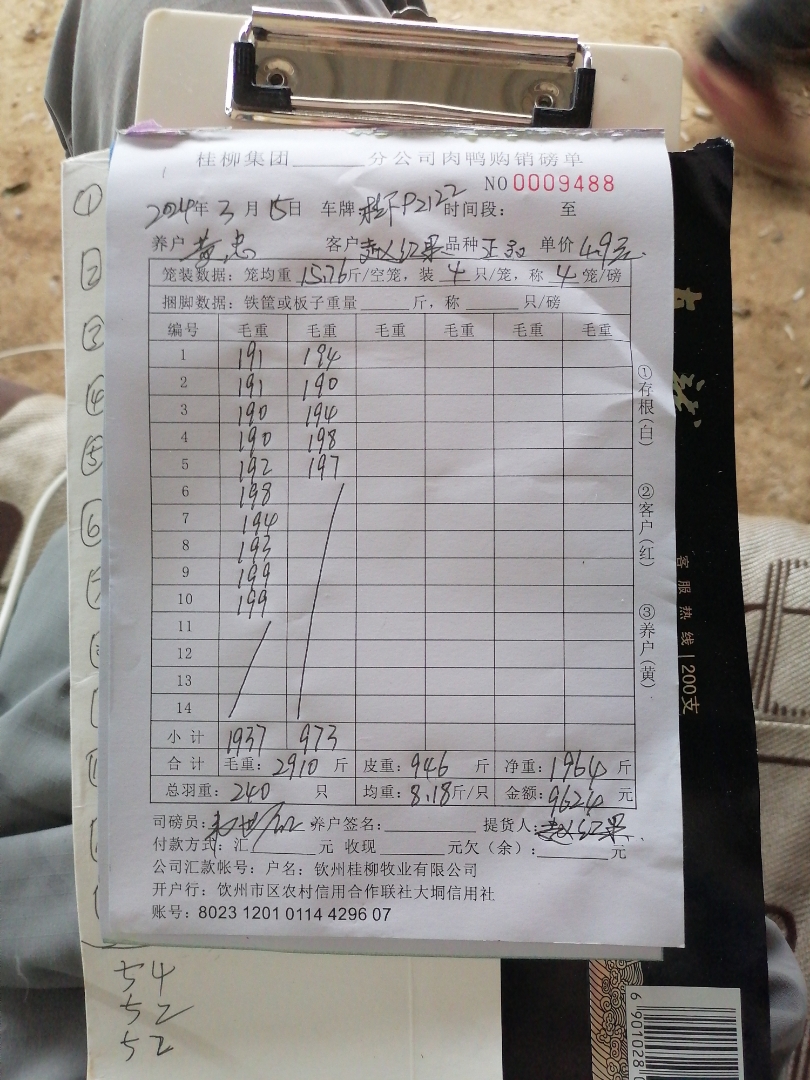 桂柳集团______分公司肉鸭购销磅单
NO 0009488
2024年3月15日 车牌 P2122 时间段: 至
养户 黄忠 客户 赵红果 品种 正 单价 4.9元
笼装数据: 笼均重 15.76斤/空笼, 装 4 只/笼, 称 4 笼/磅
捆脚数据: 铁筐或板子重量______斤, 称______只/磅
编号 毛重 毛重 毛重 毛重 毛重 毛重
1 191 194
2 191 190
3 190 194
4 190 198
5 192 197
6 198
7 194
8 193
9 199
10 199
11
12
13
14
小计 1937 973
合计 毛重: 2910 斤 皮重: 946 斤 净重: 1964 斤
总羽重: 240 只 均重: 8.18斤/只 金额: 9624 元
司磅员: 养户签名:__________ 提货人: 赵红果
付款方式: 汇________元 收现________元欠(余):________元
公司汇款帐号: 户名: 钦州桂柳牧业有限公司
开户行: 钦州市区农村信用合作联社大垌信用社
账号: 8023 1201 0114 4296 07
①存根(白)
②客户(红)
③养户(黄)
①
②
③
④
⑤
⑥
54
52
52
客服热线
200支
6 901028